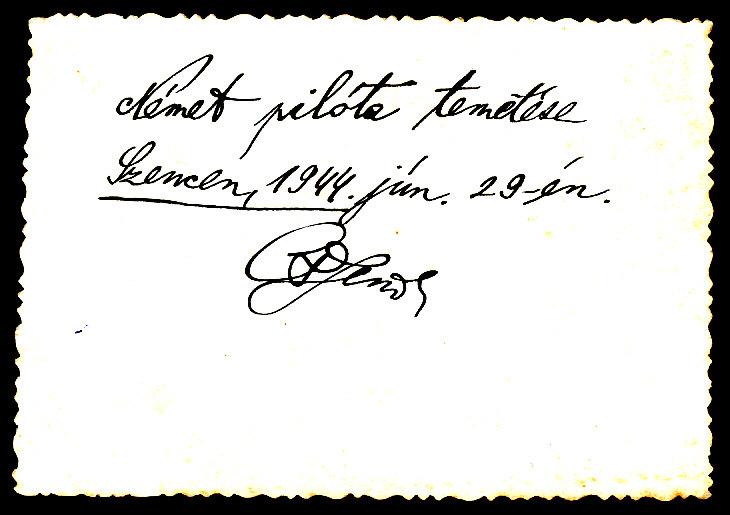 Német pilóta temetése
Szencen, 1944. jún. 29-én.